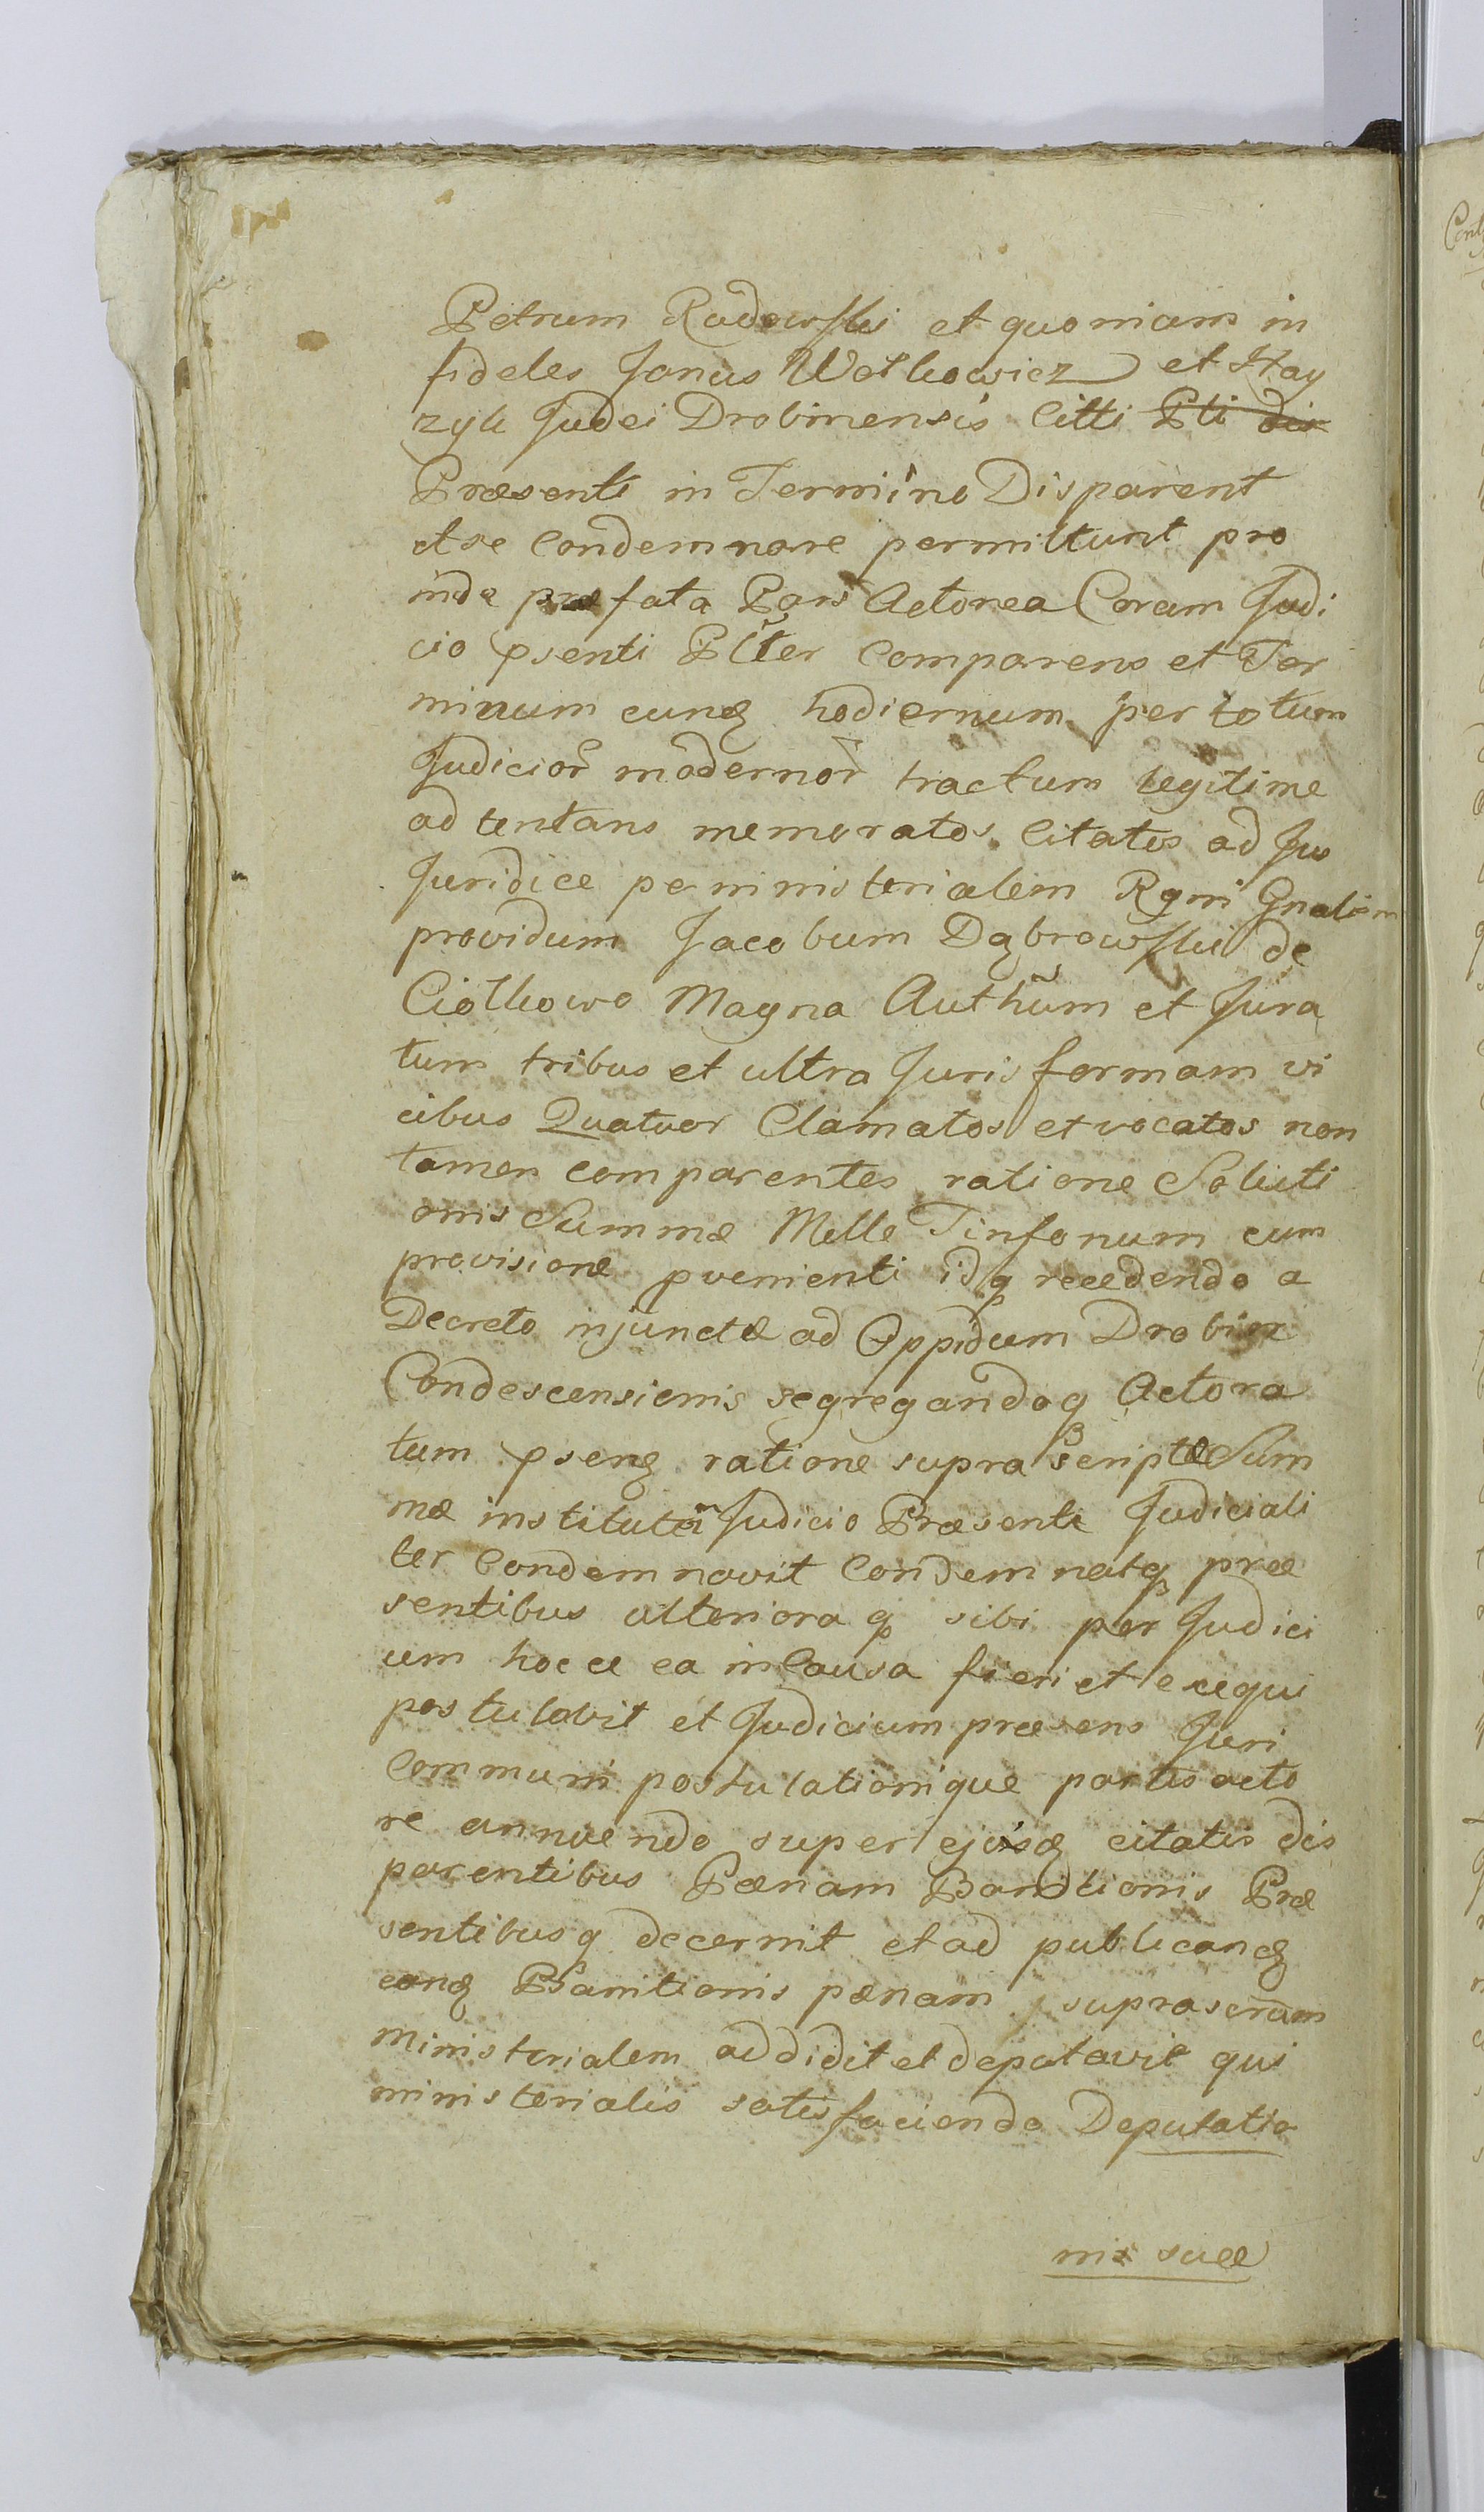 Petrum Radowski et quoniam in
fideles Janus Wolkowicz et Hay
zyk Judei Drobinensis Citti Pti dis
Præsenti in Termino Disparent
et se Condemnare permittunt pro
inde præfata Pars Actorea Coram Judi
cio psenti Plter Comparens et Ter
minum eunq hodiernum per totum
Judicior modernor tractum legitime
adtentans memoratos Citatos ad Jus
Juridice per ministerialem Rgni Gnalem
providum Jacobum Dąbrowski de
Ciołkowo Magna Authum et Jura
tum tribus et ultra Juris formam vi
cibus Quatuor Clamatos et vocatos non
tamen comparentes ratione Soluti
onis Summæ Mille Tinfonum cum
provisione pvenienti idq recedendo a
Decreto injunctæ ad Oppidum Drobin
Condescensionis segregandoq Actora
tum psenq ratione supra scriptæ Sum
mæ institutu in Judicio Præsenti Judiciali
ter Condemnavit Condemnatq præ
sentibus ulteriora q sibi per Judici
um hocce ea in Causa fieri et exequi
postulavit et Judicium præsens Juri
Communi postulationique partis acto
re annuendo super ejusq citatis dis
parentibus Pænam Banitionis Præ
sentibusq decernit et ad publicanq
eanq Banitionis pænam suprascrum
Ministerialem addidit et deputavit qui
ministerialis satisfaciendo Deputatio
nis suæ
Cont